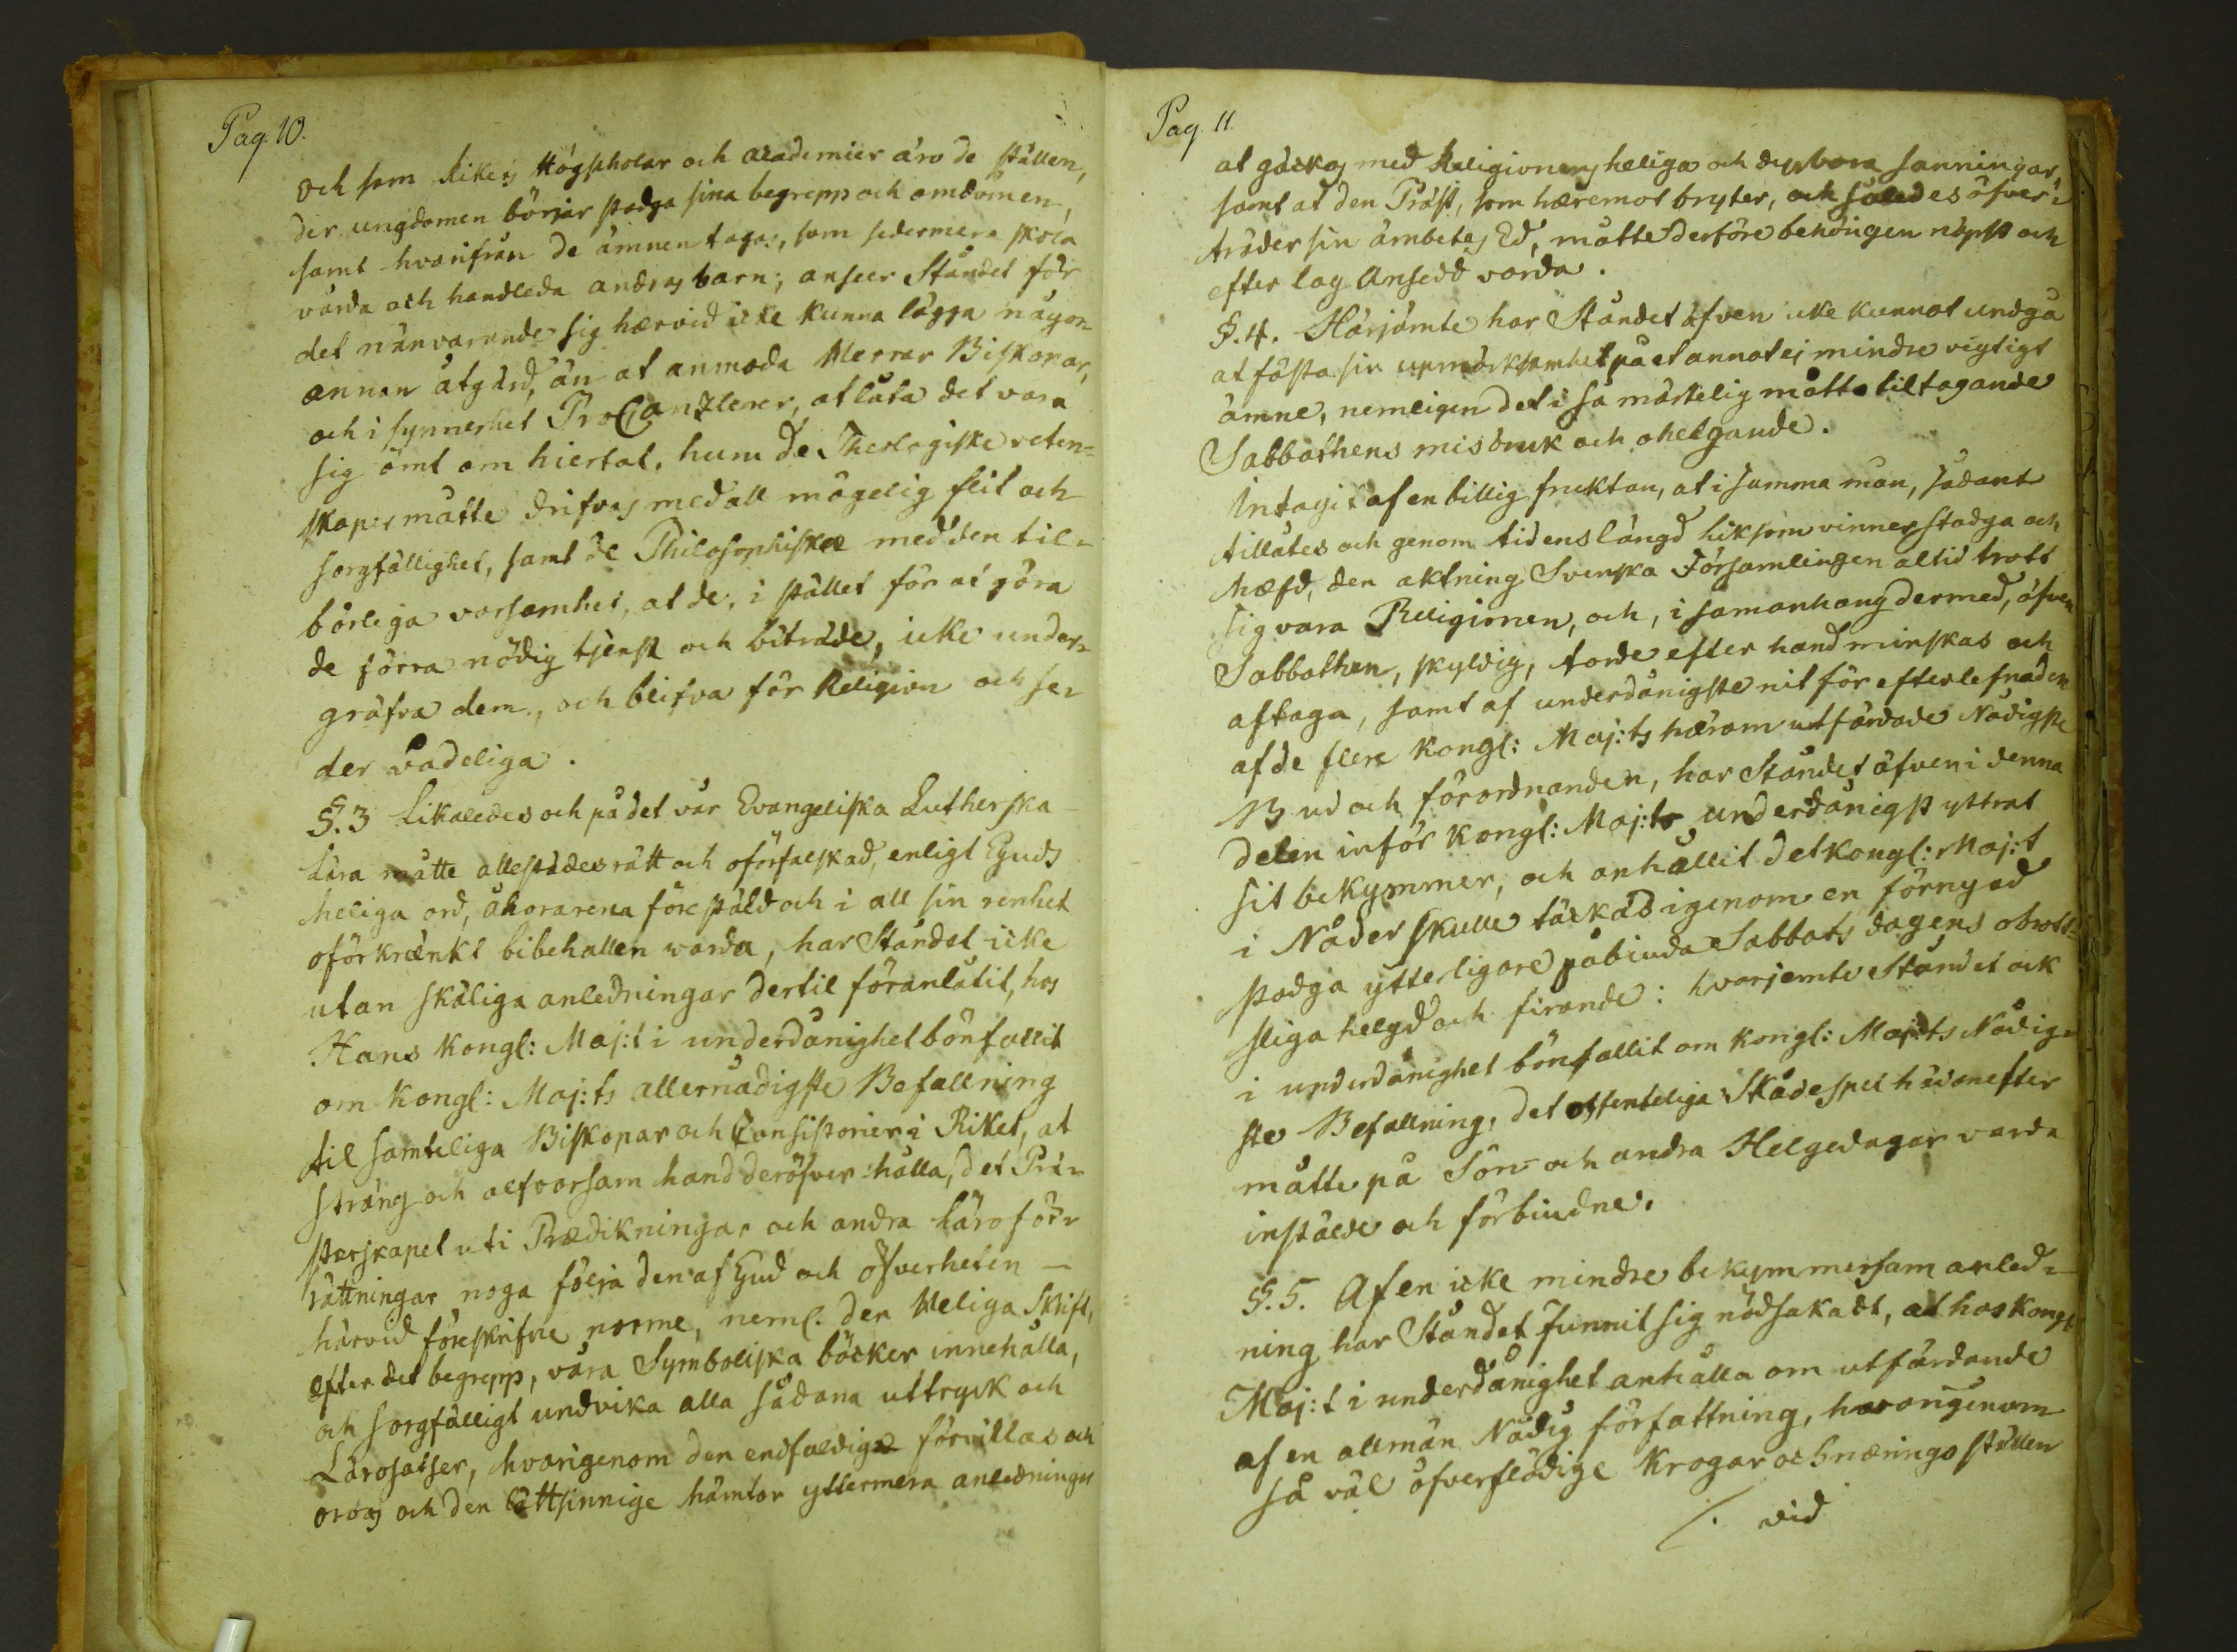 Pag. 10.
och som Rikets Högscholar och academier äro de ställen,
der ungdomen börjar stadga sina begrepp och omdömen,
samt hvarifrån de ämnen tagas, som sedermera skola
vårda och handleda andras barn; anseer Ståndet för
det närvarande sig härvid icke kunna lägga någon
annan åtgärd, än at anmoda Herrar Biskopar,
och i synnerhet ProCanzlerer, at låta det vara
sig ömt om hiertat, huru de Theologiske veten=
skaper måtte drifvas med all mögelig flit och
sorgfällighet, samt de Philosophiske med den til=
börliga varsamhet, at de, i stället för at göra
de förra nödig tjenst och biträde, icke under=
gräfva dem, och blifva för Religion och se=
der vådeliga.
§. 3 Likaledes och på det vår Evangeliska Lutherska
Lära måtte allestädes rätt och oförfalskad, enligt Guds
heliga ord, åhörarena föreställd och i all sin renhet
oförkränkt bibehållen warda, har Ståndet icke
utan skäliga anledningar dertil föranlåtit, hos
Hans Kongl: Maj:t i underdånighet bönfallit
om Kongl: Maj:ts allernådigste Befallning
til samteliga Biskopar och Consistorier i Riket, at
sträng och alfvarsam hand deröfver hålla, det Prä=
sterskapet uti Prædikningar och andra Läroför=
rättningar noga följa den af Gud och Öfverheten
härvid föreskrifne norme, neml. den Heliga Skrift,
efter det begrepp, våra Symboliska böcker innehålla,
och sorgfälligt undvika alla sådana uttryck och
Lärosatser, hvarigenom den enfaldige förvillas och
oroas och den lättsinnige hämtar yttermera anledningar
Pag. 11.
at gäckas med Religionens heliga och dyrbara sanningar,
samt at den Präst, som häremot bryter, och således öfver=
träder sin ämbetes Ed, måtte derföre behörigen näpst och
efter lag Ansedd varda.
§. 4. Härjämte har Ståndet äfven icke kunnat undgå
at fästa sin upmärksamhet på et annat ej mindre vigtigt
ämne, nemligen det i så märkelig måtto tiltagande
Sabbathens misbruk och ohelgande.
Intagit af en billig fruktan, at i samma mån, sådant
tillåtes och genom tidens längd liksom vinner stadga och
häfd, den aktning Svenska Församlingen altid trott
sig vara Religionen, och, i samanhang dermed, äfven
Sabbathen, skyldig, torde efter hand minskas och
aftaga, samt af underdånigste nit för efterlefnaden
af de flere Kongl: Maj:ts härom utfärdade Nådigste
Bud och förordnanden, har Ståndet äfven i denna
delen inför Kongl: Maj:ts underdånigst yttrat
sit bekymmer, och anhållit det Kongl: Maj:t
i Nåder skulle täckas igenom en förnyad
stadga ytterligare påbiuda Sabbats dagens obrots=
sliga helgd och firande: hvarjemte Ståndet ock
i underdånighet bönfallit om Kongl: Maj:ts Nådig=
ste Befallning, det offenteliga Skådespel härefter
måtte på Sön- och andra Helgedagar varda
instälde och förbiudne.
§. 5. Af en icke mindre bekymmersam anled=
ning har Ståndet funnit sig nödsakadt, at hos Kongl:
Maj:t i underdånighet anhålla om utfärdande
af en allmän Nådig författning, hvarigenom
så väl öfverflödige krogar och närings ställen
/. vid